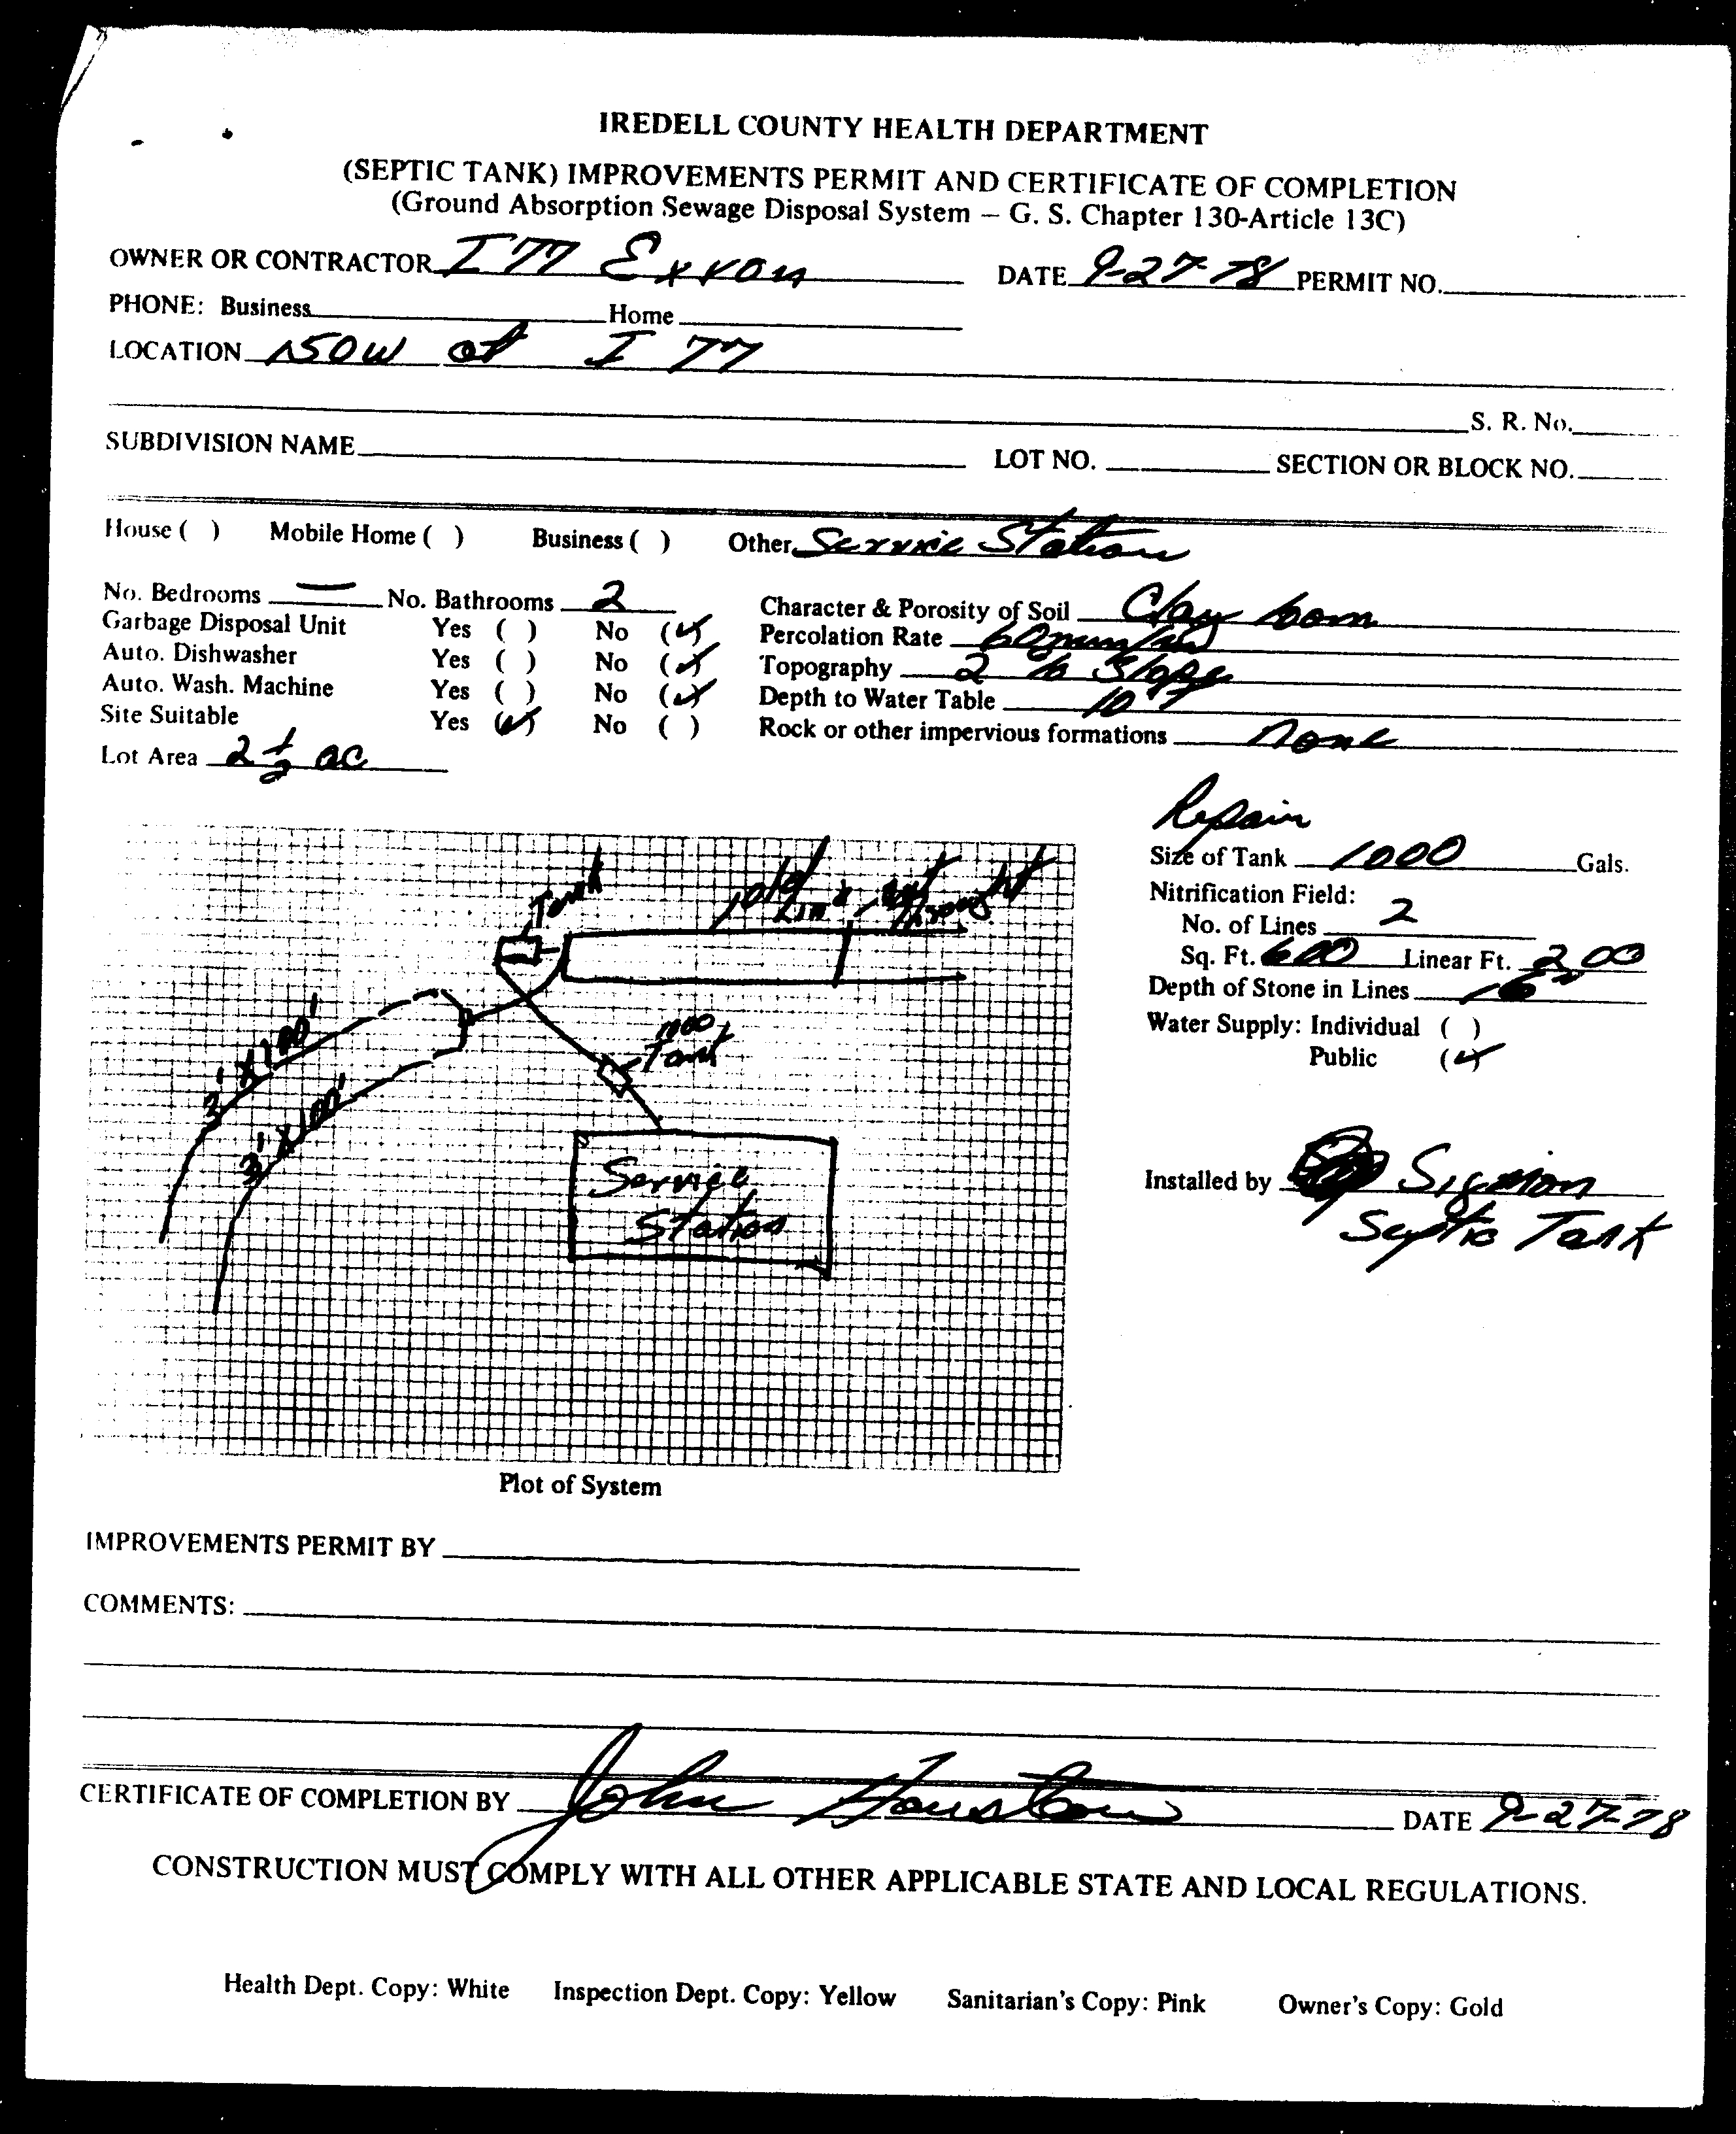 IREDELL COUNTY HEALTH DEPARTMENT
(SEPTIC TANK) IMPROVEMENTS PERMIT AND CERTIFICATE OF COMPLETION
(Ground Absorption Sewage Disposal System – G. S. Chapter 130-Article 13C)
OWNER OR CONTRACTOR I 77 Exxon DATE 9-27-78 PERMIT NO.
PHONE: Business Home
LOCATION 150W at I 77
S. R. No.
SUBDIVISION NAME LOT NO. SECTION OR BLOCK NO.
House ( ) Mobile Home ( ) Business ( ) Other Service Station
No. Bedrooms — No. Bathrooms 2 Character & Porosity of Soil Clay loam
Garbage Disposal Unit Yes ( ) No (✓) Percolation Rate 60 min/in
Auto. Dishwasher Yes ( ) No (✓) Topography 2 % Slope
Auto. Wash. Machine Yes ( ) No (✓) Depth to Water Table 10
Site Suitable Yes (✓) No ( ) Rock or other impervious formations none
Lot Area 2 1/2 ac
Repair
Size of Tank 1000 Gals.
Nitrification Field:
No. of Lines 2
Sq. Ft. 600 Linear Ft. 200
Depth of Stone in Lines
Water Supply: Individual ( )
Public (✓)
Installed by Sigmon
Septic Tank
Tank
old
Lines
3' X 100'
3' X 100'
1000
Tank
Service
Station
Plot of System
IMPROVEMENTS PERMIT BY
COMMENTS:
CERTIFICATE OF COMPLETION BY John Houston DATE 9-27-78
CONSTRUCTION MUST COMPLY WITH ALL OTHER APPLICABLE STATE AND LOCAL REGULATIONS.
Health Dept. Copy: White Inspection Dept. Copy: Yellow Sanitarian's Copy: Pink Owner's Copy: Gold